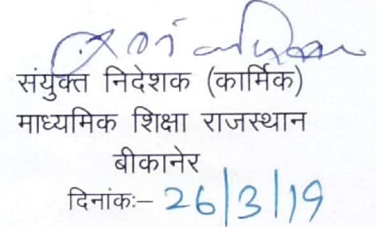 संयुक्त निदेशक (कार्मिक)
माध्यमिक शिक्षा राजस्थान
बीकानेर
दिनांकः– 26/3/19